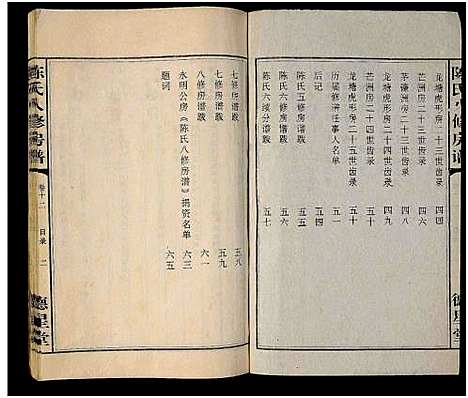 陈氏八修房谱
龙塘虎形房二十三世齿录 四四
芒洲房二十三世齿录 四六
芒洲房二十四世齿录 四九
龙塘虎形房二十四世齿录 五十
龙塘虎形房二十五世齿录 五一
历届修谱任事人名录 五三
后记 五四
陈氏五修房谱跋 五五
陈氏六续分谱跋 五七
德星堂
陈氏八修房谱
卷十二
目录
二
德星堂
七修房谱跋 五八
七修谱跋 五九
八修房谱跋 六一
永明公房《陈氏八修房谱》捐资名单 六三
题词 六五